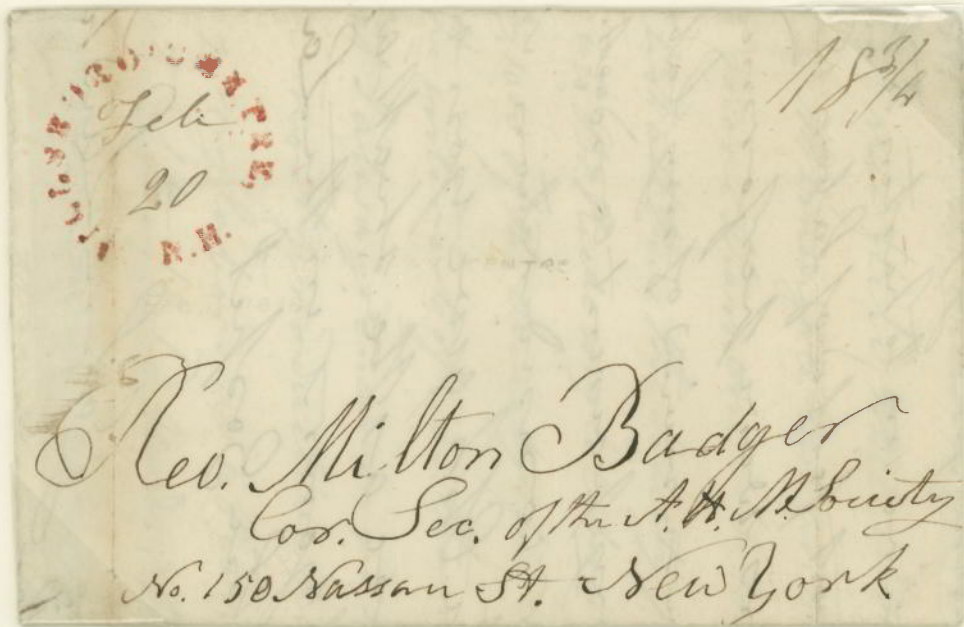 HILLSBORO' CENTRE, N.H.
Feb
20
18 3/4
Rev. Milton Badger
Cor. Sec. of the A. H. M. Society
No. 150 Nassau St. New York